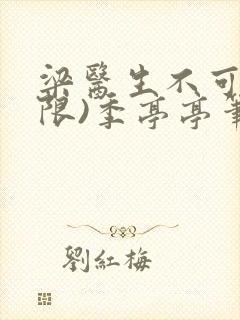 梁醫生不可
限)季亭亭筆
劉紅梅